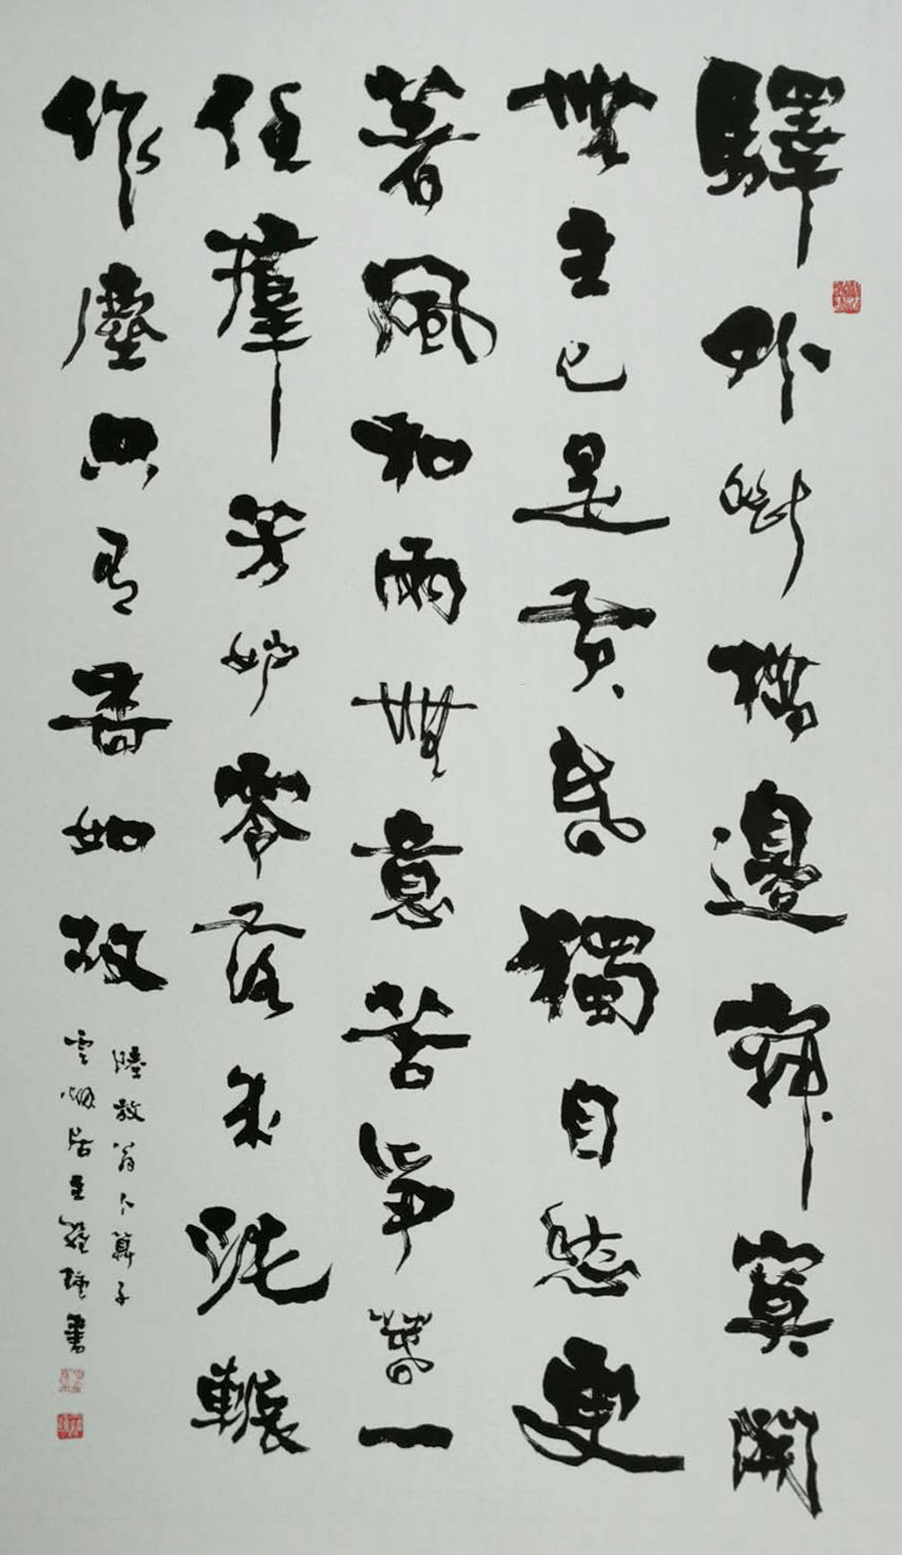 驛外斷橋邊寂寞開
無主已是黃昏獨自愁更
著風和雨無意苦爭春一
任羣芳妒零落成泥輾
作塵只有香如故
陸放翁卜算子
雲烟居主書